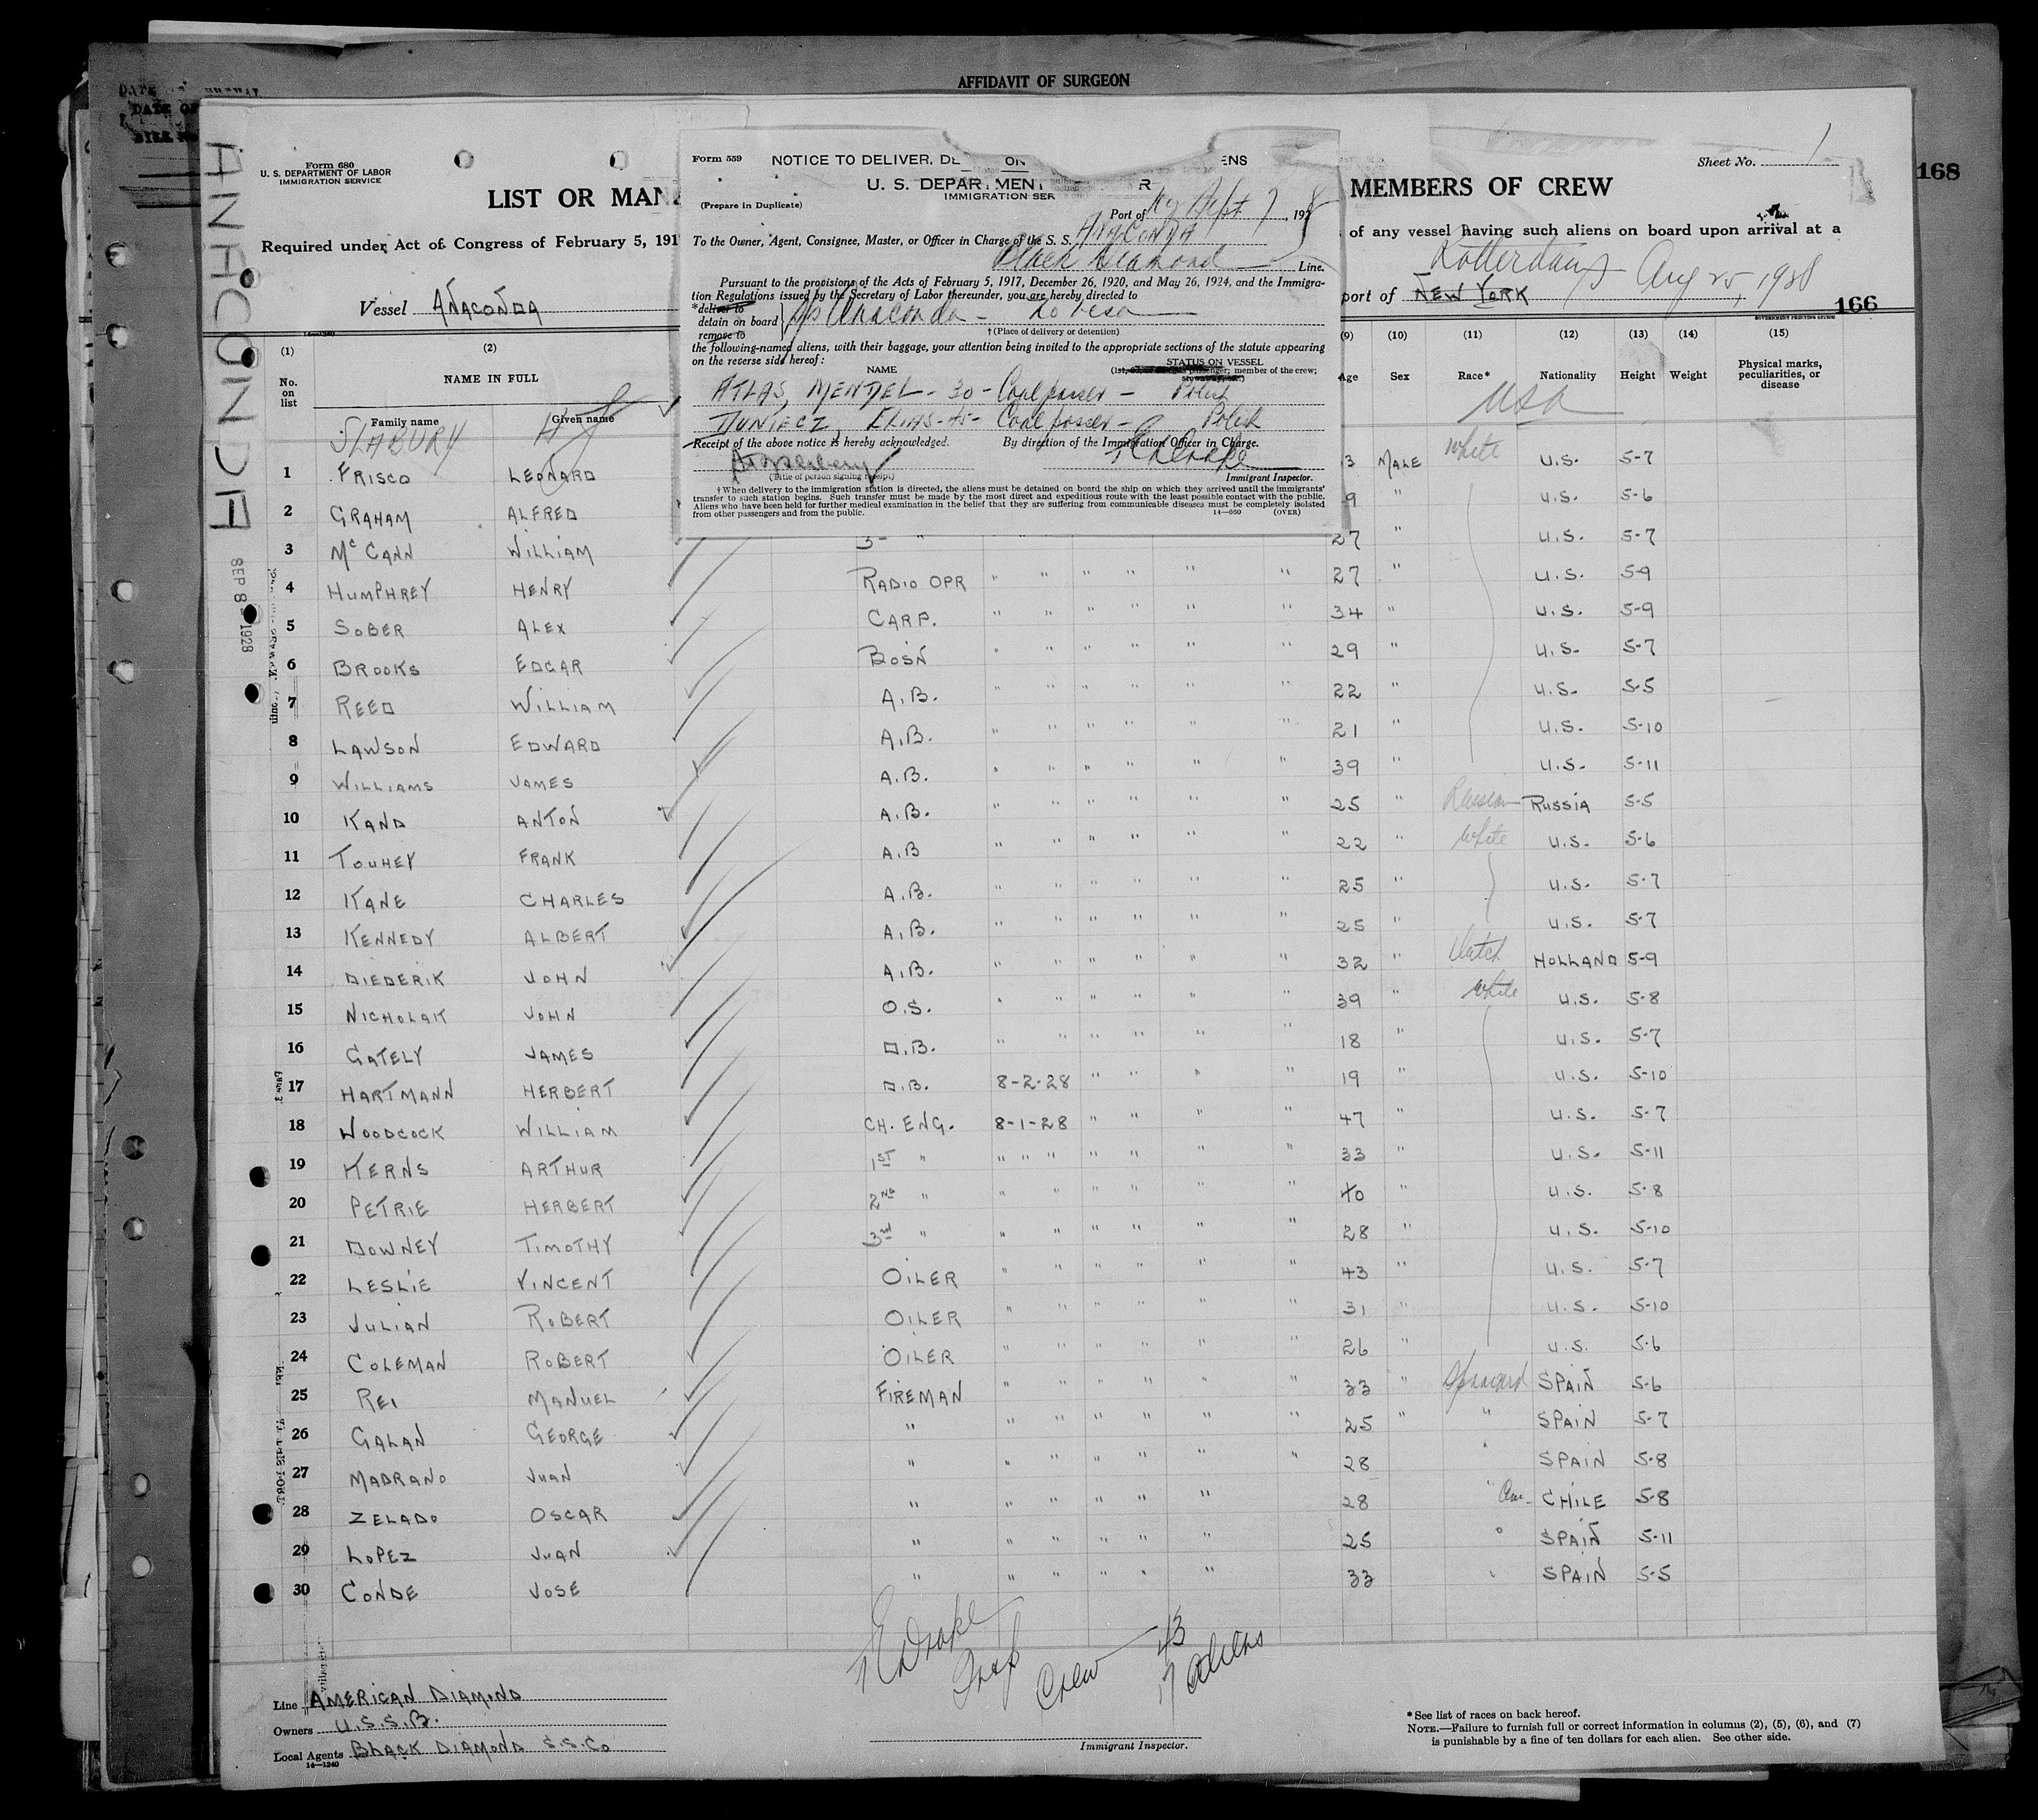 AFFIDAVIT OF SURGEON
168
ANACONDA
SEP 8 1928
Form 680
U. S. DEPARTMENT OF LABOR
IMMIGRATION SERVICE
Sheet No. 1
LIST OR MEMBERS OF CREW
Required under Act of Congress of February 5, 191 of any vessel having such aliens on board upon arrival at a
Rotterdam Aug 25, 1928
Vessel ANACONDA port of NEW YORK
166
Form 559 NOTICE TO DELIVER, ENS
U. S. DEPARTMENT R
IMMIGRATION SER
(Prepare in Duplicate)
Port of NY Sept 7, 1928
To the Owner, Agent, Consignee, Master, or Officer in Charge of the S. S. ANACONDA
Black Diamond Line.
Pursuant to the provisions of the Acts of February 5, 1917, December 26, 1920, and May 26, 1924, and the Immigra-
tion Regulations issued by the Secretary of Labor thereunder, you are hereby directed to
*deliver to
detain on board S/S Anaconda - No visa
remove to
† (Place of delivery or detention)
the following-named aliens, with their baggage, your attention being invited to the appropriate sections of the statute appearing
on the reverse side hereof:
NAME STATUS ON VESSEL
passenger; member of the crew;
ATLAS, MENDEL - 30 - Coal passer - Polish
ELIAS - Coal passer - Polish
Receipt of the above notice is hereby acknowledged. By direction of the Immigration Officer in Charge.
(Title of person signing receipt) Immigrant Inspector.
† When delivery to the immigration station is directed, the aliens must be detained on board the ship on which they arrived until the immigrants'
transfer to such station begins. Such transfer must be made by the most direct and expeditious route with the least possible contact with the public.
Aliens who have been held for further medical examination in the belief that they are suffering from communicable diseases must be completely isolated
from other passengers and from the public. 14—660 (OVER)
(1) (2) (9) (10) (11) (12) (13) (14) (15)
No. on list NAME IN FULL Age Sex Race* Nationality Height Weight Physical marks, peculiarities, or disease
Family name Given name USA
SLABURY H J
1 FRISCO LEONARD 3 MALE White U.S. 5-7
2 GRAHAM ALFRED 9 " U.S. 5-6
3 McCANN WILLIAM 3 " 27 " U.S. 5-7
4 HUMPHREY HENRY RADIO OPR " " " " " " 27 " U.S. 5-9
5 SOBER ALEX CARP. " " " " " " 34 " U.S. 5-9
6 BROOKS EDGAR BOSN " " " " " " 29 " U.S. 5-7
7 REED WILLIAM A.B. " " " " " " 22 " U.S. 5-5
8 LAWSON EDWARD A.B. " " " " " " 21 " U.S. 5-10
9 WILLIAMS JAMES A.B. " " " " " " 39 " U.S. 5-11
10 KAND ANTON A.B. " " " " " " 25 " Russian RUSSIA 5-5
11 TOUHEY FRANK A.B " " " " " " 22 " White U.S. 5-6
12 KANE CHARLES A.B. " " " " " " 25 " U.S. 5-7
13 KENNEDY ALBERT A.B. " " " " " " 25 " U.S. 5-7
14 DIEDERIK JOHN A.B. " " " " " " 32 " Dutch HOLLAND 5-9
15 NICHOLAK JOHN O.S. " " " " " " 39 " White U.S. 5-8
16 GATELY JAMES D.B. " " " " " " 18 " U.S. 5-7
17 HARTMANN HERBERT D.B. 8-2-28 " " " " 19 " U.S. 5-10
18 WOODCOCK WILLIAM CH. ENG. 8-1-28 " " " " 47 " U.S. 5-7
19 KERNS ARTHUR 1ST " " " " " " " " 33 " U.S. 5-11
20 PETRIE HERBERT 2ND " " " " " " " 40 " U.S. 5-8
21 DOWNEY TIMOTHY 3rd " " " " " " " 28 " U.S. 5-10
22 LESLIE VINCENT OILER " " " " " " 43 " U.S. 5-7
23 JULIAN ROBERT OILER " " " " " " 31 " U.S. 5-10
24 COLEMAN ROBERT OILER " " " " " " 26 " U.S. 5-6
25 REI MANUEL FIREMAN " " " " " " 33 " Spaniard SPAIN 5-6
26 GALAN GEORGE " " " " " " " 25 " " SPAIN 5-7
27 MADRANO JUAN " " " " " " " 28 " SPAIN 5-8
28 ZELADO OSCAR " " " " " " 28 " Am. CHILE 5-8
29 LOPEZ JUAN " " " " " " 25 " SPAIN 5-11
30 CONDE JOSE " " " " " " 33 " SPAIN 5-5
Drake
Insp Crew 43
7 aliens
Line AMERICAN DIAMOND
Owners U.S.S.B.
Local Agents BLACK DIAMOND S.S.Co
14—1240
Immigrant Inspector.
* See list of races on back hereof.
NOTE.—Failure to furnish full or correct information in columns (2), (5), (6), and (7)
is punishable by a fine of ten dollars for each alien. See other side.